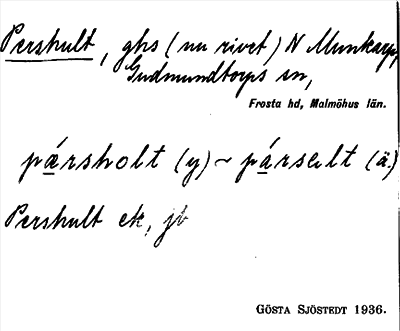 Pershult, ghs (nu rivet) N Munkarp,
Gudmundtorps sn,
Frosta hd, Malmöhus län.
pæ̲rsholt (y) ~ pá̲rselt (ä.)
Pershult ek, jb
GÖSTA SJÖSTEDT 1936.